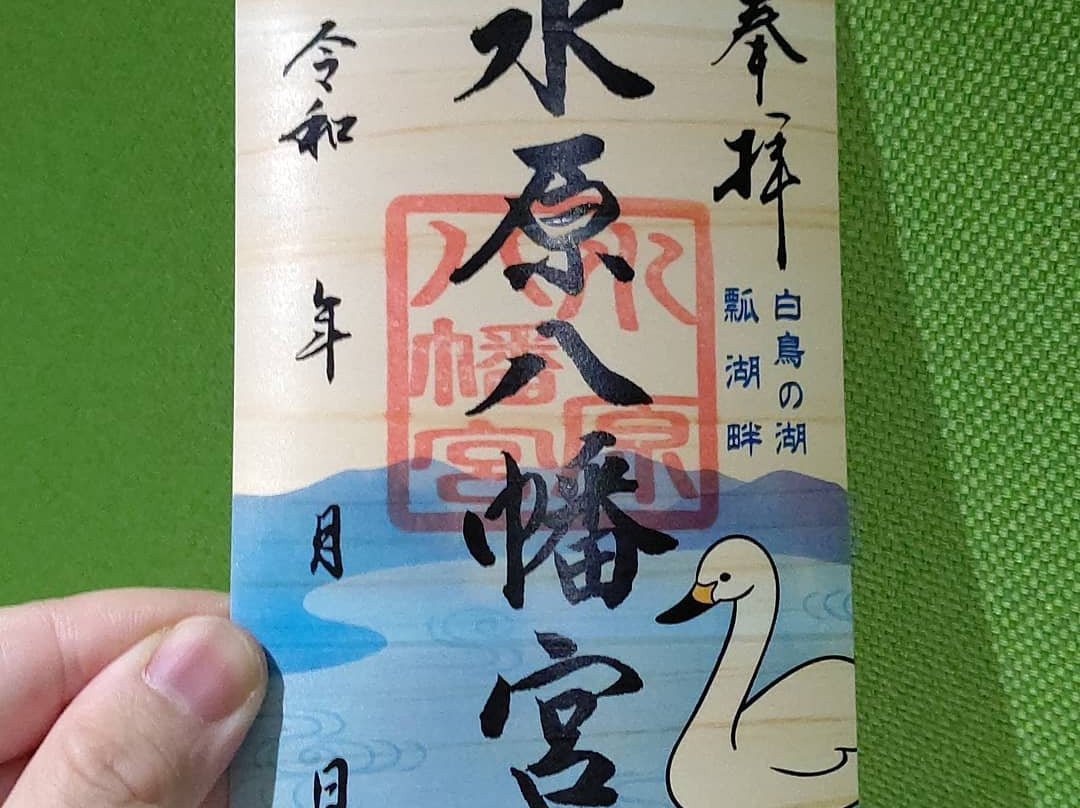 奉拝
白鳥の湖
瓢湖畔
水原八幡宮
水原
八幡宮
令和 年 月 日